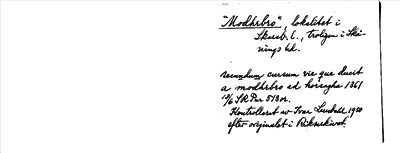 "Modhrbro", lokalitet i
Skarab. l., troligen i Skå-
nings hd.
secundum cursum vie que ducit
a modhrbro ad horsagha 1361
10/6 SRPer 513 or.
Kontrollerat av Ivar Lundahl 1950
efter originalet i Riksarkivet.